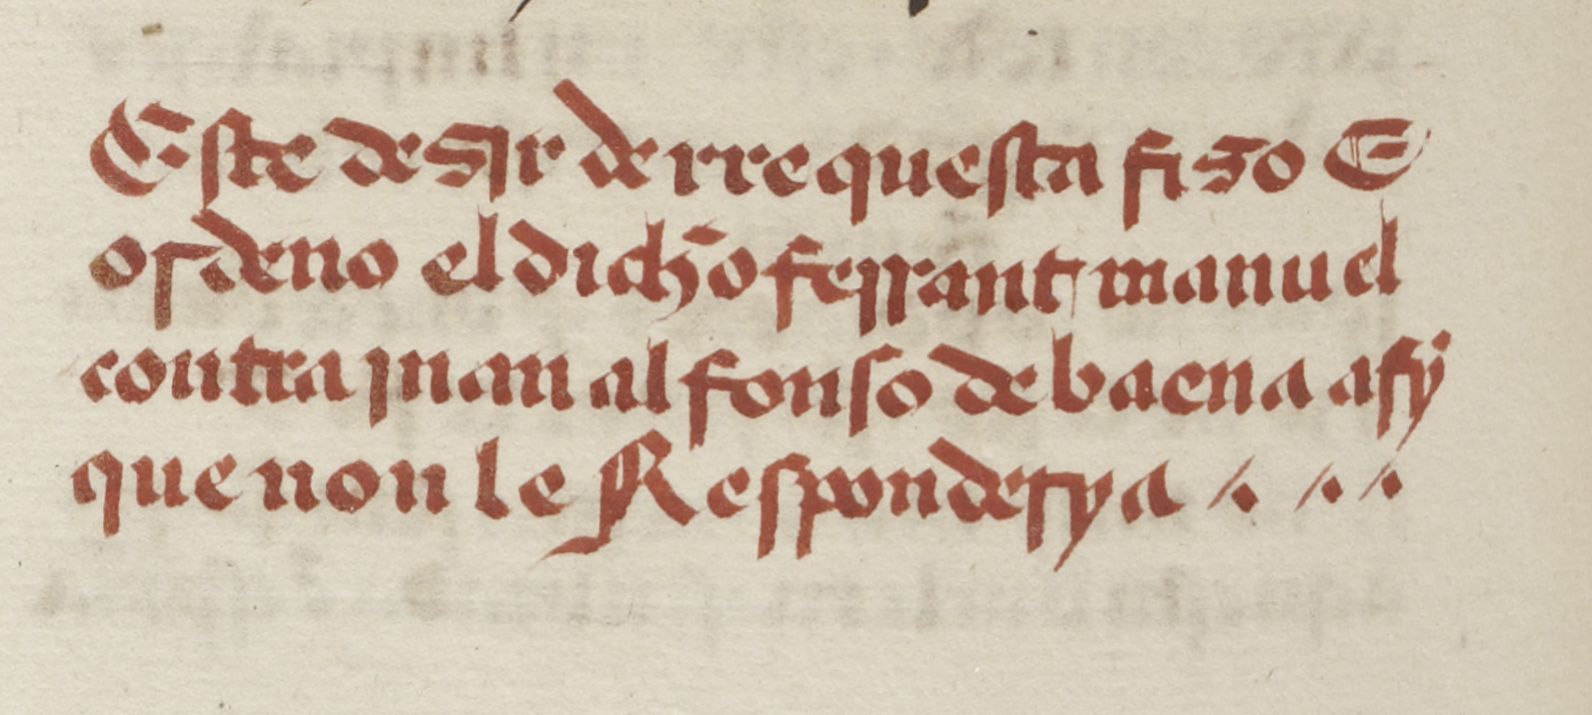 Este desir de rrequesta fiso E
ordeno el dicho ferrant manuel
contra juan alfonso de baena asy
que non le Responderya . . .